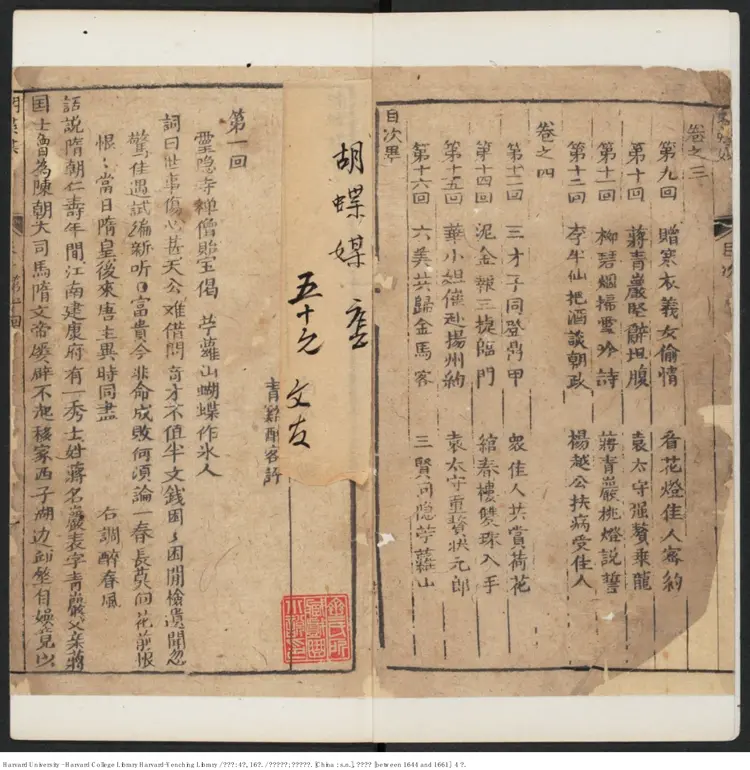 卷之三
第九回 贈寒衣義女偷情 看花燈佳人密約
第十回 蔣青巖堅辭坦腹 袁太守强贅乘龍
第十一回 柳碧烟掃雪吟詩 蔣青巖挑燈說誓
第十二回 李半仙把酒談朝政 楊越公扶病受佳人
卷之四
第十三回 三才子同登鼎甲 衆佳人共賞荷花
第十四回 泥金報三捷臨門 綰春樓雙珠入手
第十五回 華小姐催赴揚州約 袁太守重贅狀元郎
第十六回 六美共歸金馬客 三賢同隐苧蘿山
目次畢
胡蝶媒
五十元 文友
青谿醉客評
第一回
靈隐寺禅僧貽宝偈 苧蘿山蝴蝶作氷人
詞曰世事傷心甚天公难借問奇才不值半文錢困〻困閒檢遺聞忽
驚佳遇試編新听富貴今非命成敗何須論一春長莫向花前恨
恨〻當日隋皇後來唐主異時同盡 右調醉春風
話說隋朝仁壽年間江南建康府有一秀士姓蔣名巖表字青巖父亲蔣
国士曾為陳朝大司馬隋文帝屡辟不起移家西子湖边
Harvard University - Harvard College Library Harvard-Yenching Library / ???: 4?, 16?. / ?????: ?????. [China : s.n.], ???? [between 1644 and 1661] 4 ?.